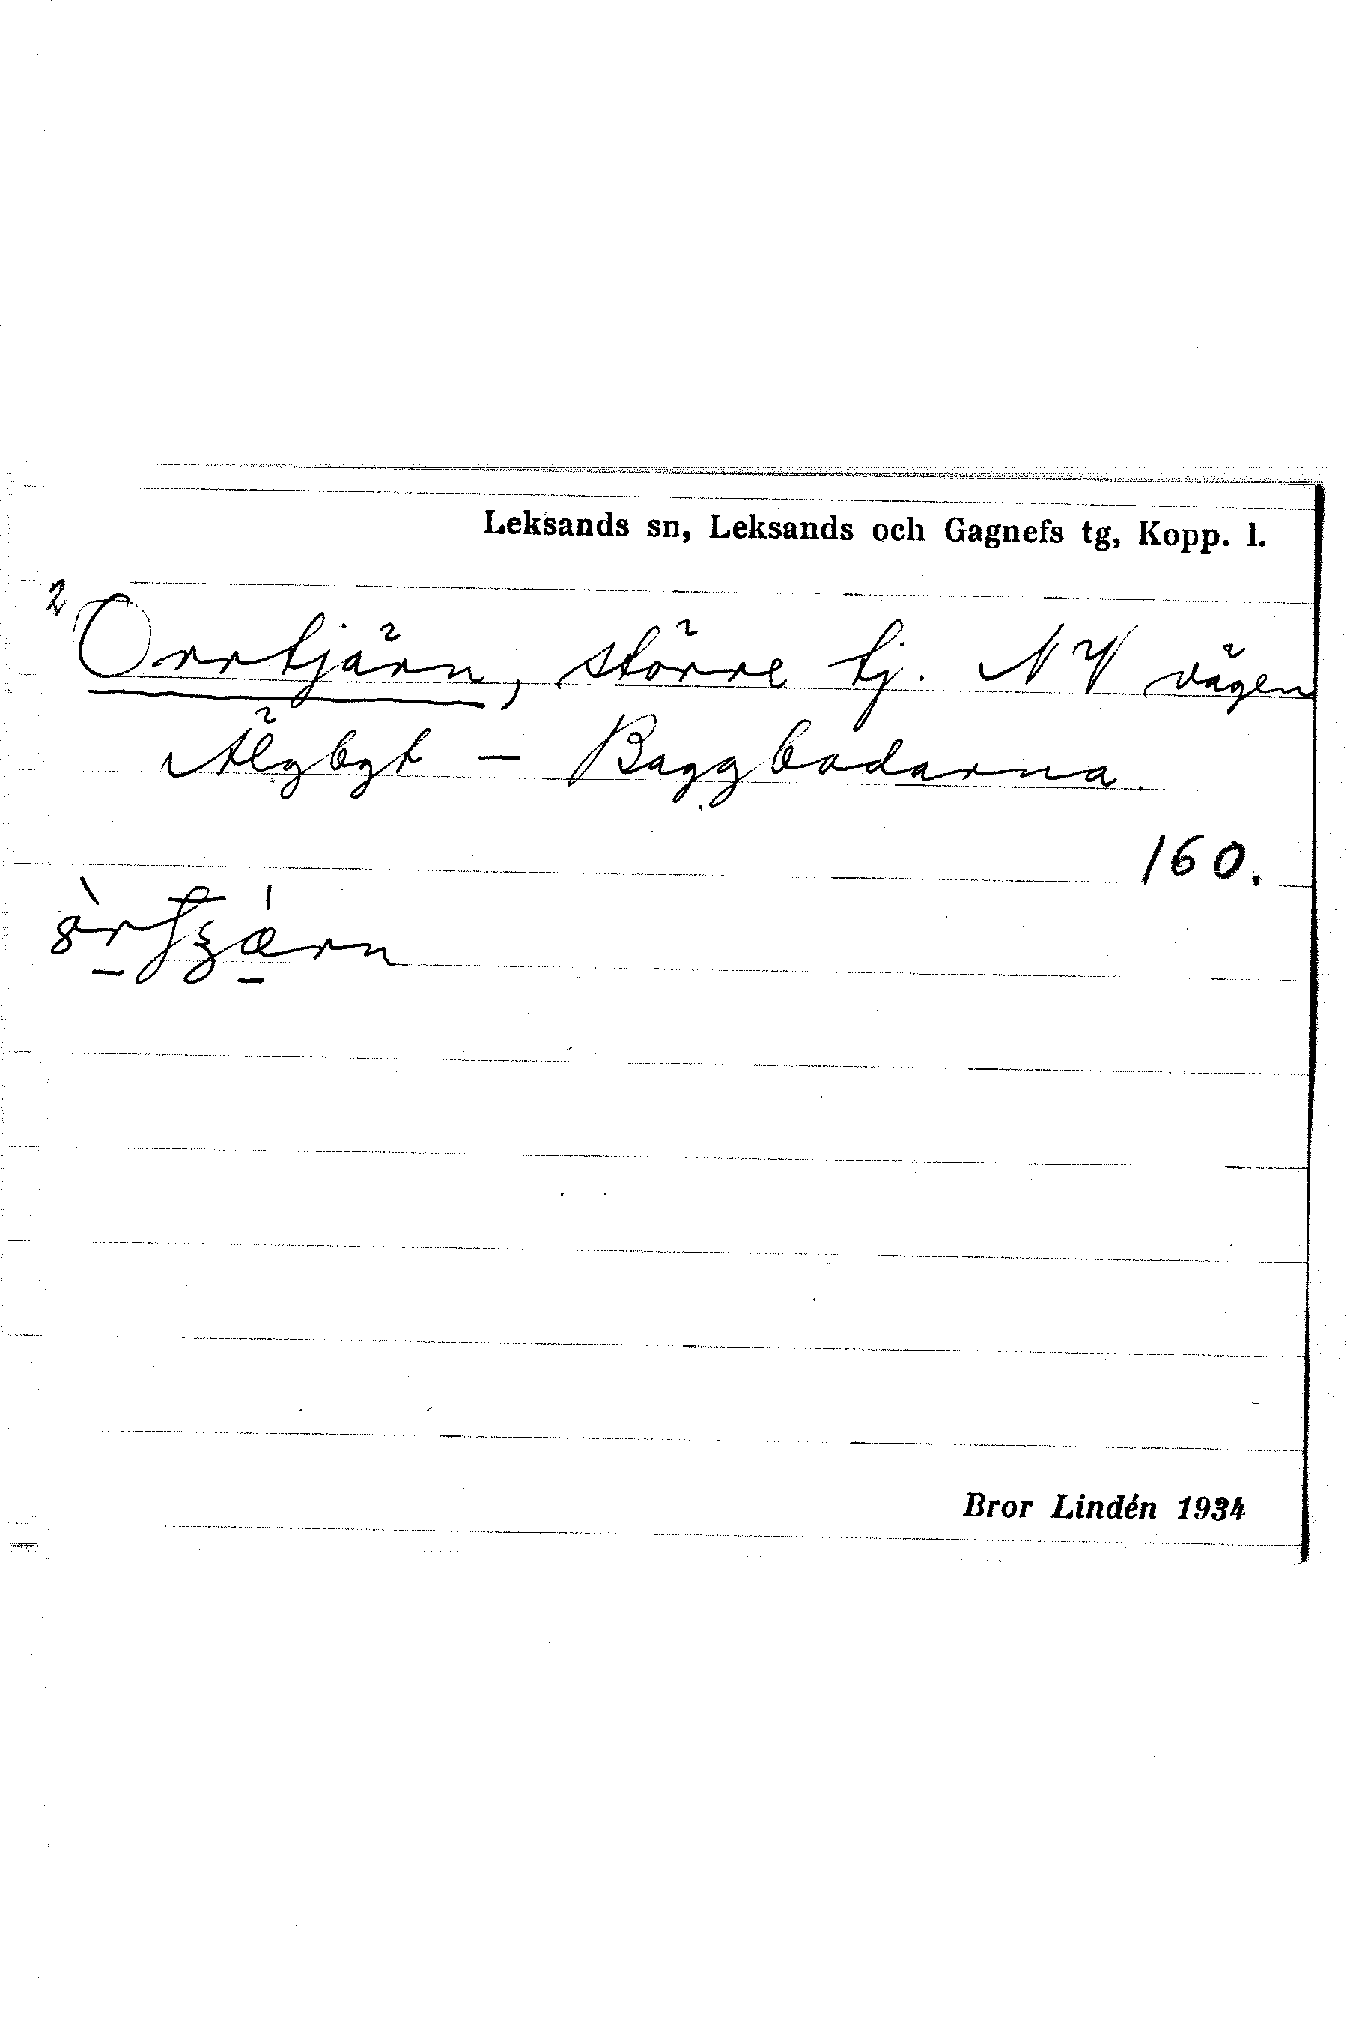 Leksands sn, Leksands och Gagnefs tg, Kopp. l.
2 Orrtjärn, större tj. NV vägen
Älgbyt – Baggbodarna.
160.
Bror Lindén 1934